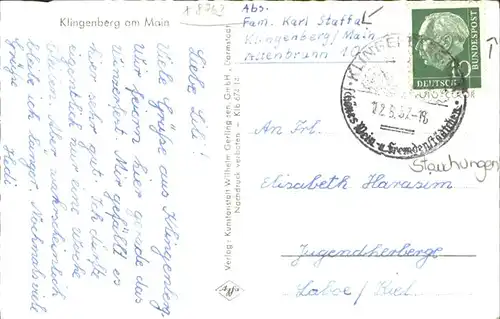 Klingenberg am Main
Abs.
Fam. Karl Staffa
Klingenberg/Main
Altenbrunn 10
Liebe Lili!
Viele Grüße aus Klingenberg.
Wir feiern hier gerade das
Winzerfest. Mir gefällt es
hier sehr gut. Ich dürfte
eigentlich nur eine Woche
bleiben. Aber wahrscheinlich
bleibe ich länger. Nochmals viele
Grüße
Hedi
Verlag: Kunstanstalt Wilhelm Gerling sen. GmbH., Darmstadt
Nachdruck verboten
An Frl.
Elisabeth Harasim
Jugendherberge
Laboe / Kiel
DEUTSCHE BUNDESPOST
Schönes Wein- u. Fremdenstädtchen
Stauchungen